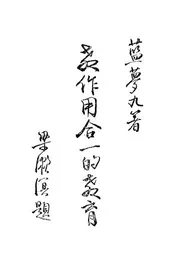 藍夢九著
教作用合一的教育
梁漱溟題